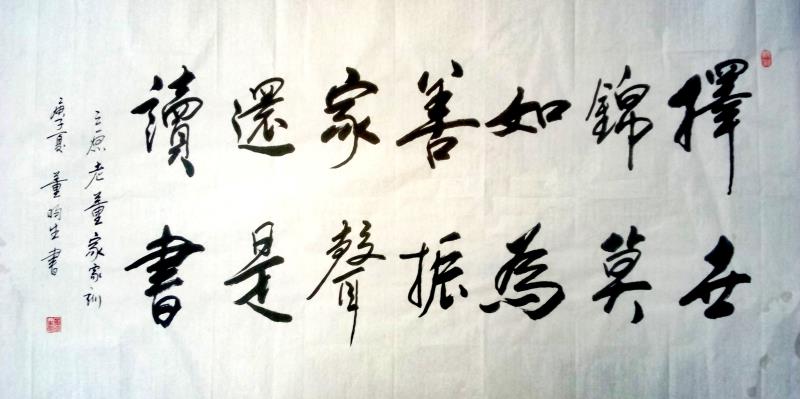 擇世
錦莫
如為
善振
家聲
還是
讀書
三原老董家家訓
庚子夏 董昀生書